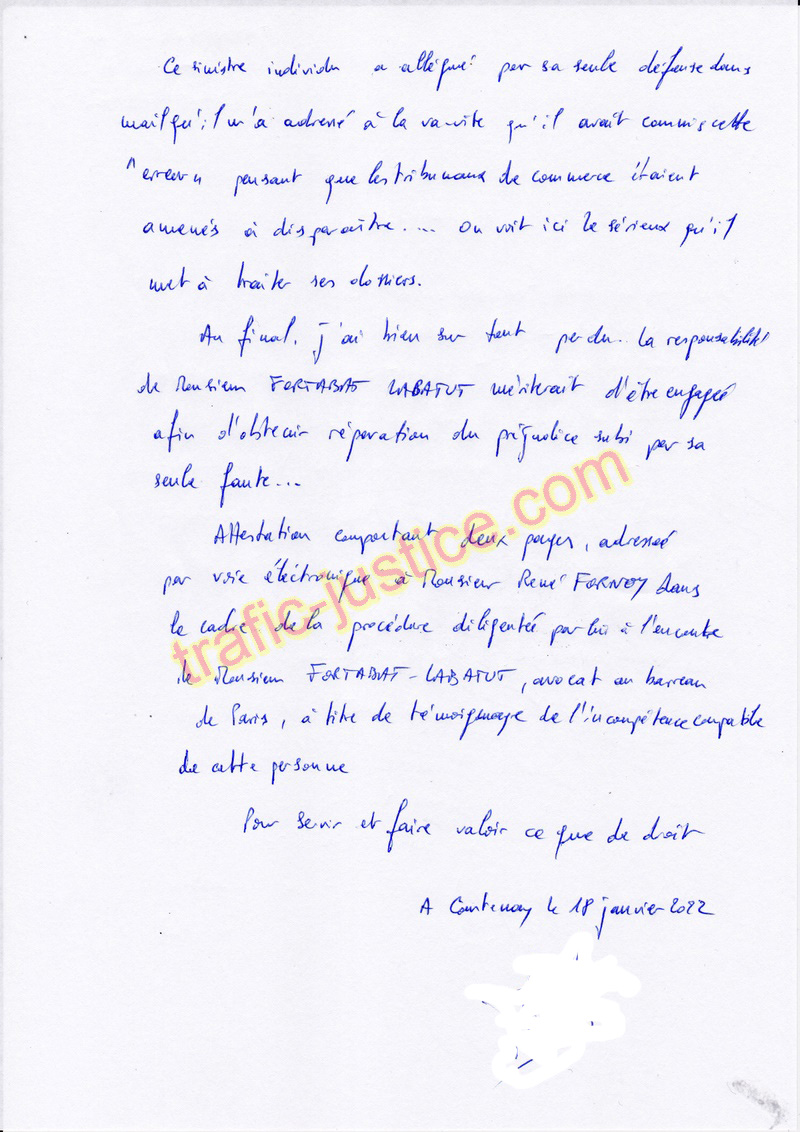 Ce sinistre individu a allégué par sa seule défense dans
mail qu'il m'a adressé à la va-vite qu'il avait commis cette
"erreur" pensant que les tribunaux de commerce étaient
amenés à disparaître.... On voit ici le sérieux qu'il
met à traiter ses dossiers.
Au final, j'ai bien sur tout perdu... la responsabilité
de Monsieur FORTABAT LABATUT mériterait d'être engagée
afin d'obtenir réparation du préjudice subi par sa
seule faute...
Attestation comportant deux pages, adressée
par voie électronique à Monsieur René FORNEY dans
le cadre de la procédure diligentée par lui à l'encontre
de Monsieur FORTABAT-LABATUT, avocat au barreau
de Paris, à titre de témoignage de l'incompétence coupable
de cette personne
Pour servir et faire valoir ce que de droit
A Courtenay le 18 janvier 2022
trafic-justice.com